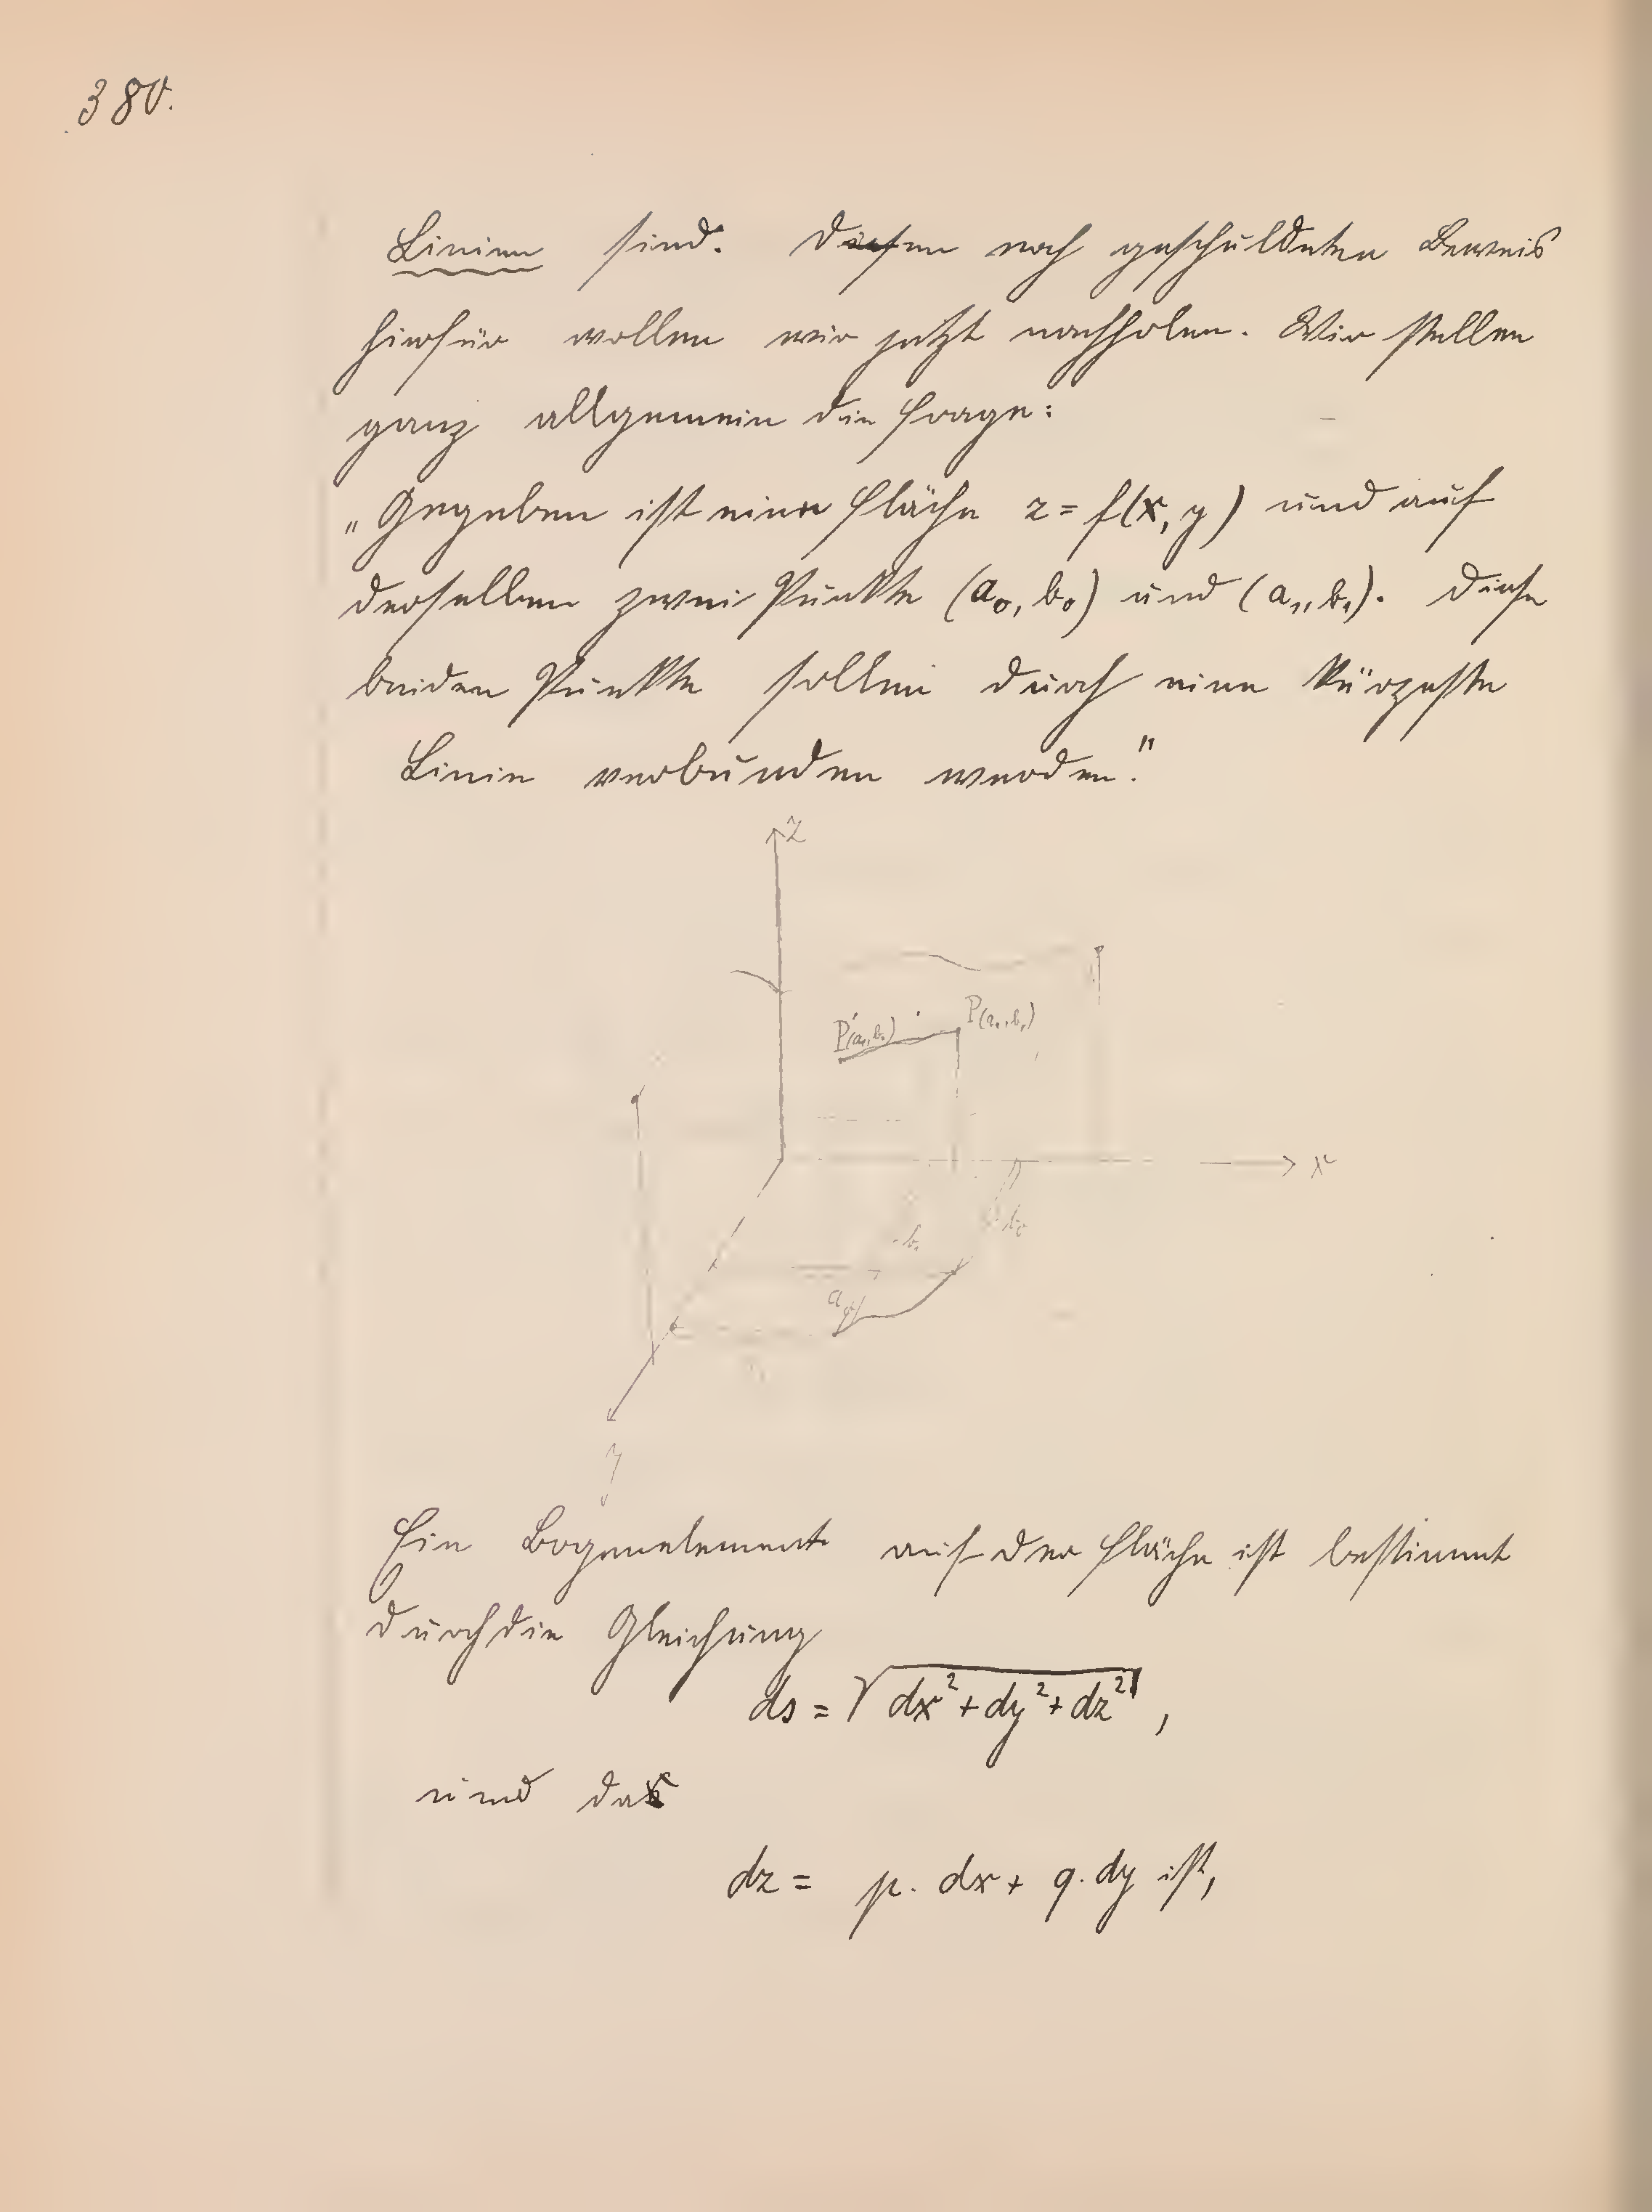 380.
Linien sind. Diesen noch geschuldeten Beweis
hierfür wollen wir jetzt nachholen. Wir stellen
ganz allgemein die Frage:
„Gegeben ist eine Fläche z = f(x, y) und auf
derselben zwei Punkte (a₀, b₀) und (a₁, b₁). Diese
beiden Punkte sollen durch eine kürzeste
Linie verbunden werden."
z
P(a₁, b₁)
x
b₀
b₁
y
Ein Bogenelement auf der Fläche ist bestimmt
durch die Gleichung
ds = √dx² + dy² + dz² ,
und da
dz = p. dx + q. dy ist,